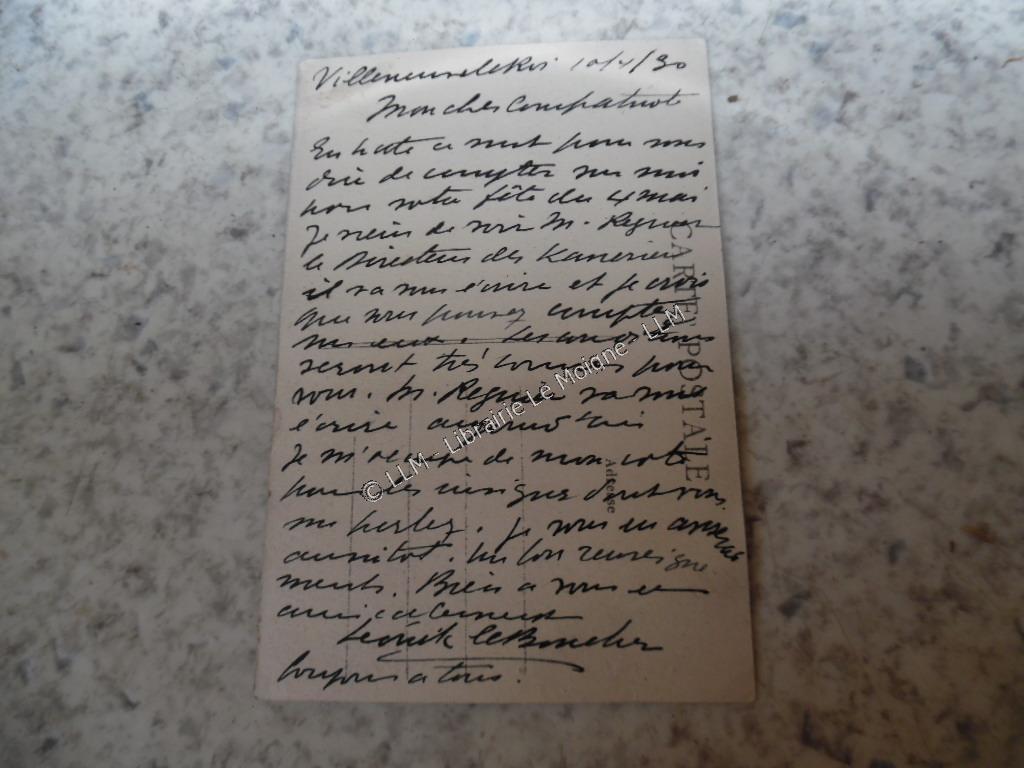 Villeneuve le Roi 10/4/30
Mon cher Compatriote
En hate ce mot pour vous
dire de compter sur moi
pour votre fête du 4 mai
Je viens de voir M. Regnier
le Directeur des
il va vous écrire et je crois
que vous pouvez compter
sur eux. Les conditions
seront très bonnes pour
vous. M. Regnier va vous
écrire
Je m'occupe de mon coté
pour les insignes dont vous
me parlez. Je vous en
aussitot. les bon renseigne
ments. Bien a vous en
amicalement
Leonick Le Boucher
bonjour a tous.
CARTE POSTALE
Adresse
© LLM - Librairie Le Moigne - LLM